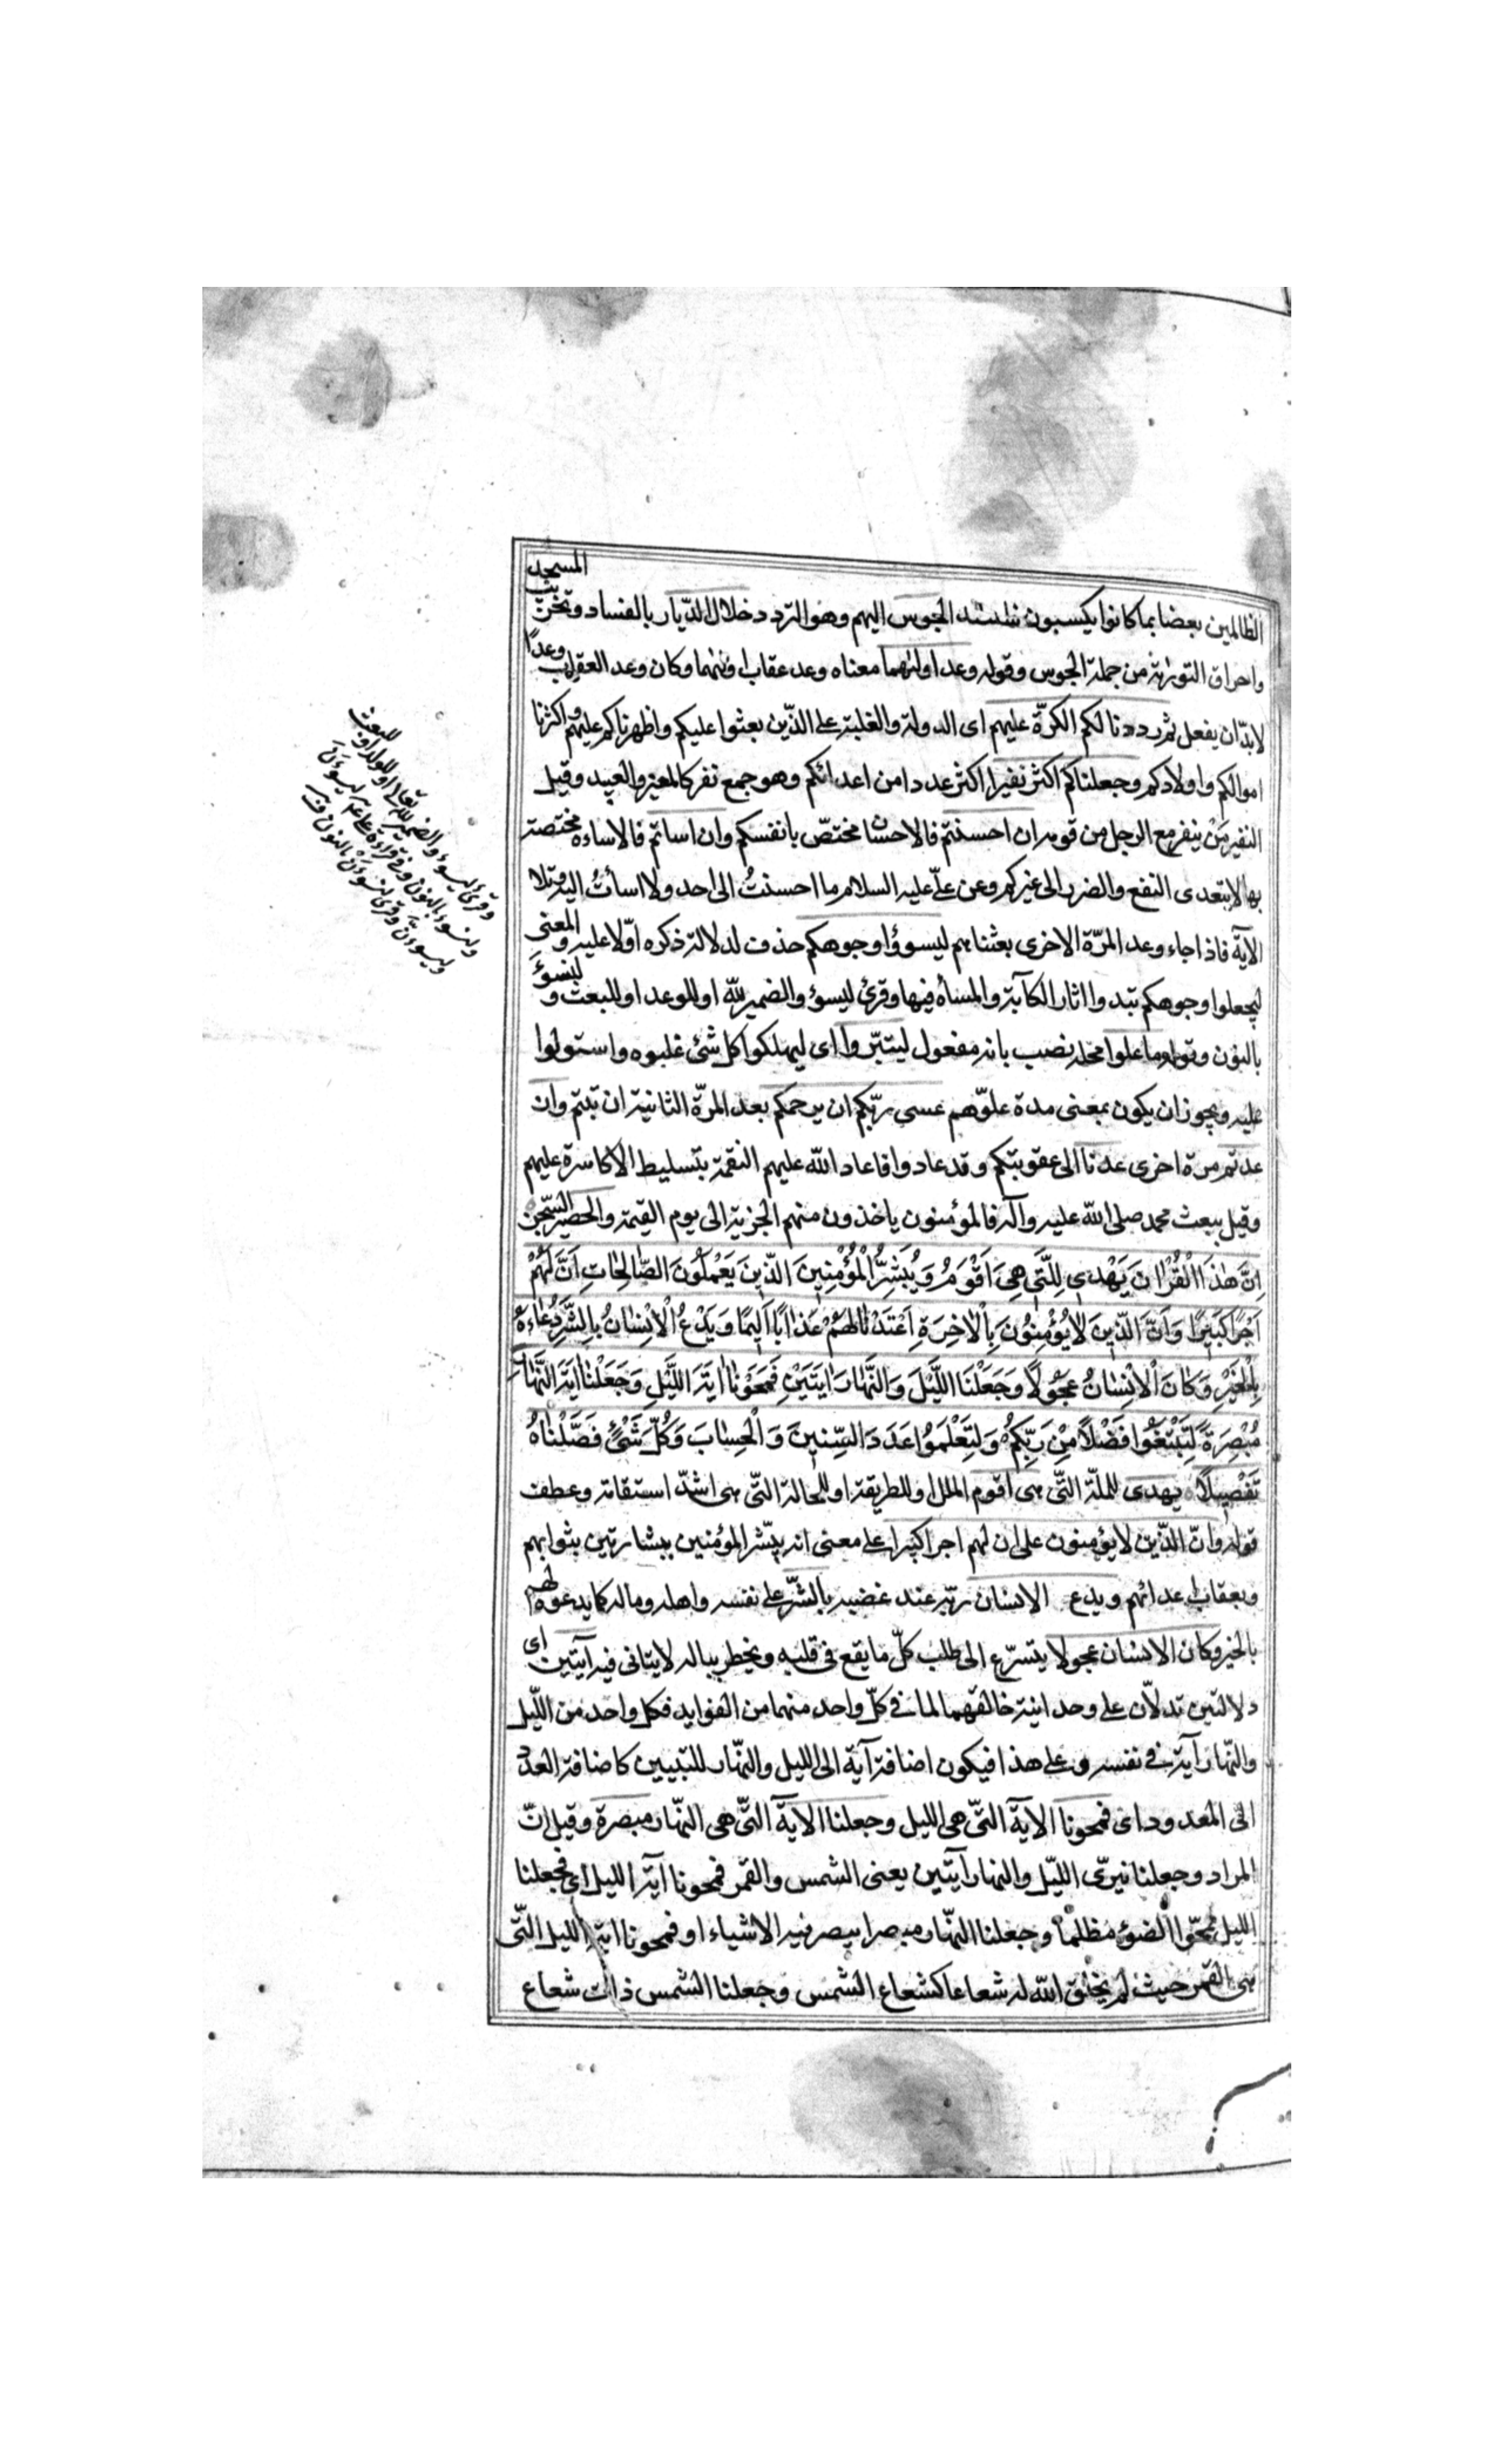 الظالمين بعضا بما كانوا يكسبون فاسند الجوس اليهم وهو التردد خلال الديار بالفساد وتخريب المسجد
واحراق التورىة من جملة الجوس وقوله وعد اولىهما معناه وعد عقاب اولىهما وكان وعد العقاب وعدًا
لا بدّ ان يفعل ثم رددنا لكم الكرّة عليهم اى الدولة والغلبة على الذّين بعثوا عليكم واظهرناكم عليهم واكثرنا
اموالكم واولادكم وجعلناكم اكثر نفيرا اكثر عددا من اعدائكم وهو جمع نفر كالمعيز والعبيد وقيل
النفير مَنْ ينفر مع الرجل من قومه ان احسنتم فالاحسان مختصّ بانفسكم وان اساتم فالاساءة مختصة
بها لا يتعدى النفع والضر الى غيركم وعن علىّ عليه السلام ما احسنتُ الى احد ولا اسأتُ اليه وتلا
الآية فاذا جاء وعد المرّة الاخرى بعثناهم ليسوؤا وجوهكم حذف لدلالة ذكره اوّلا عليه والمعنى
ليجعلوا وجوهكم تبدوا اثار الكآبة والمساءة فيها وقرئ ليسوؤ والضمير للّه او للوعد او للبعث و لنسوءَ
بالنون وقوله ما علوا محله نصب بانه مفعول ليتبّروا اى ليهلكوا كل شئ غلبوه واستولوا
عليه ويجوز ان يكون بمعنى مدة علوّهم عسى ربّكم ان يرحمكم بعد المرّة الثانية ان تبتم وان
عدتم مرة اخرى عدنا الى عقوبتكم وقد عادوا فاعاد اللّه عليهم النقمة بتسليط الاكاسرة عليهم
وقيل ببعث محمد صلى اللّه عليه وآله فالمؤمنون ياخذون منهم الجزية الى يوم القيمة والحصير السّجن
اِنَّ هٰذَا الْقُرْاٰنَ يَهْدِى لِلَّتِى هِىَ اَقْوَمُ وَيُبَشِّرُ الْمُؤْمِنِينَ الَّذِينَ يَعْمَلُونَ الصَّالِحَاتِ اَنَّ لَهُمْ
اَجْرًا كَبِيرًا وَاَنَّ الَّذِينَ لَا يُؤْمِنُونَ بِالْاٰخِرَةِ اَعْتَدْنَا لَهُمْ عَذَابًا اَلِيمًا وَيَدْعُ الْاِنْسَانُ بِالشَّرِّ دُعَاءَهُ
بِالْخَيْرِ وَكَانَ الْاِنْسَانُ عَجُولًا وَجَعَلْنَا اللَّيْلَ وَالنَّهَارَ اٰيَتَيْنِ فَمَحَوْنَا اٰيَةَ اللَّيْلِ وَجَعَلْنَا اٰيَةَ النَّهَارِ
مُبْصِرَةً لِتَبْتَغُوا فَضْلًا مِنْ رَبِّكُمْ وَلِتَعْلَمُوا عَدَدَ السِّنِينَ وَالْحِسَابَ وَكُلَّ شَىْءٍ فَصَّلْنَاهُ
تَفْصِيلًا يهدى للملّة التّى هى اقوم الملل او للطريقة او للحالة التّى هى اشدّ استقامة وعطف
قوله وانّ الذّين لا يؤمنون على ان لهم اجرا كبيرا على معنى انه يبشّر المؤمنين ببشارتين بثوابهم
وبعقاب اعدائهم ويدع الانسان ربّه عند غضبه بالشّر على نفسه واهله وماله كما يدعوه لهم
بالخير وكان الانسان عجولا يتسرّع الى طلب كلّ ما يقع فى قلبه ويخطر بباله لا يتانى فيه آيتين اى
دلالتين تدلّان على وحدانية خالقهما لما فى كلّ واحد منهما من الفوايد فكل واحد من اللّيل
والنّهار آية فى نفسه وعلى هذا فيكون اضافة آية الى الليل والنّهار للتبيين كاضافة العدد
الى المعدود اى فمحونا الآية التّى هى الليل وجعلنا الآية التّى هى النّهار مبصرة وقيل انّ
المراد وجعلنا نيرّى اللّيل والنهار آيتين يعنى الشمس والقمر فمحونا آية الليل اى فجعلنا
الليل ممحوّا الضوء مظلما وجعلنا النّهار مبصرا يبصر فيه الاشياء او فمحونا اية الليل التّى
هى القمر حيث لم يخلق اللّه له شعاعا كشعاع الشمس وجعلنا الشمس ذات شعاع
وقرئ ليسوء والضمير للّه تعالى او للوعد او للبعث
ولنسوء بالنون وفى قراءة على ع ليسوءَنّ
وليسوأنّ وقرئ لنسوءَنْ بالنون